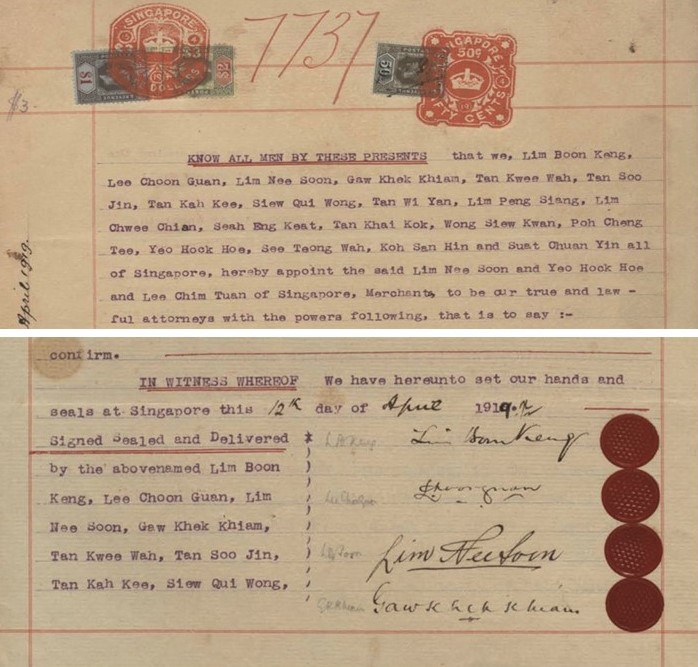 SINGAPORE
DOLLARS
$1
7737
50¢
SINGAPORE
50¢
FIFTY CENTS
$3.
KNOW ALL MEN BY THESE PRESENTS that we, Lim Boon Keng,
Lee Choon Guan, Lim Nee Soon, Gaw Khek Khiam, Tan Kwee Wah, Tan Soo
Jin, Tan Kah Kee, Siew Qui Wong, Tan Wi Yan, Lim Peng Siang, Lim
Chwee Chian, Seah Eng Keat, Tan Khai Kok, Wong Siew Kwan, Poh Cheng
Tee, Yeo Hock Hoe, See Teong Wah, Koh San Hin and Suat Chuan Yin all
of Singapore, hereby appoint the said Lim Nee Soon and Yeo Hock Hoe
and Lee Chim Tuan of Singapore, Merchants, to be our true and law -
ful attorneys with the powers following, that is to say :-
April 1919
confirm.
IN WITNESS WHEREOF We have hereunto set our hands and
seals at Singapore this 12th day of April 1919.
Signed Sealed and Delivered
by the abovenamed Lim Boon
Keng, Lee Choon Guan, Lim
Nee Soon, Gaw Khek Khiam,
Tan Kwee Wah, Tan Soo Jin,
Tan Kah Kee, Siew Qui Wong,
Lim Boon Keng
Choonguan
Lim Nee Soon
Gaw Khek Khiam